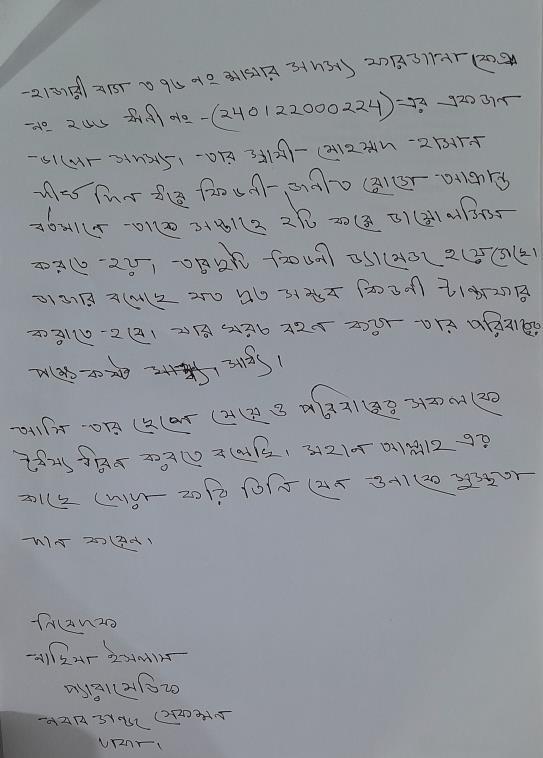 হাজারী বাগ ৩৭৬ নং শাখার সদস্য ফারজানা কেন্দ্র
নং ২৬৬ ঋনী নং -(240122000224)-এর একজন
ভালো সদস্য। তার স্বামী মোহাম্মদ হাসান
দীর্ঘ দিন ধরে কিডনী জনীত রোগে আক্রান্ত
বর্তমানে তাকে সপ্তাহে ২টি করে ডায়ালসিস
করতে হয়। তার দুটি কিডনী ড্যামেজ হয়ে গেছে।
ডাক্তার বলেছে যত দ্রুত সম্ভব কিডনী ট্রান্সফার
করতে হবে। যার খরচ বহন করা তার পরিবারের
পক্ষে কষ্ট সাধ্য।
আমি তার ছেলে মেয়ে ও পরিবারের সকলকে
ধৈর্য্য ধারন করতে বলেছি। মহান আল্লাহ এর
কাছে দোয়া করি তিনি যেন ওনাকে সুস্থতা
দান করেন।
নিবেদক
নাহিমা ইসলাম
প্যারামেডিক
নবাবগঞ্জ সেকশন
ঢাকা।